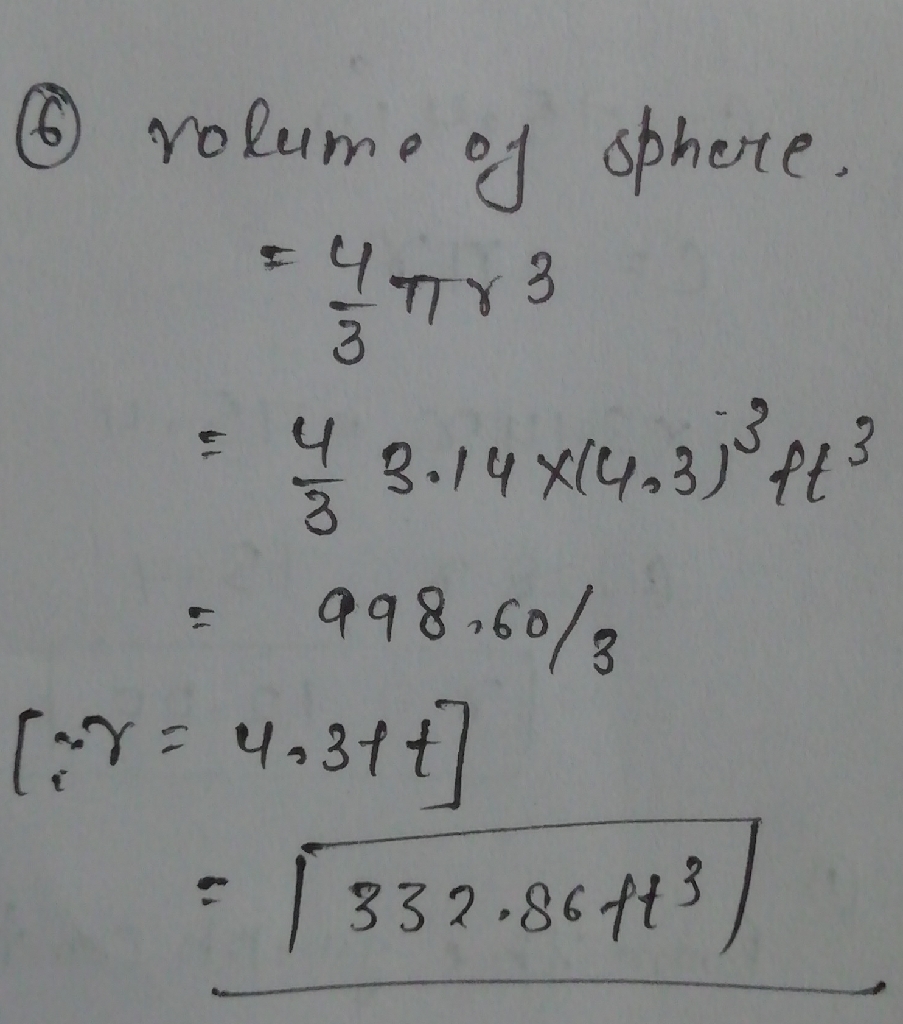 ⑥ volume of sphere.
= 4/3 πr3
= 4/3 3.14 x(4.3)³ ft³
= 998.60/3
[∵r = 4.3ft]
= 332.86ft³